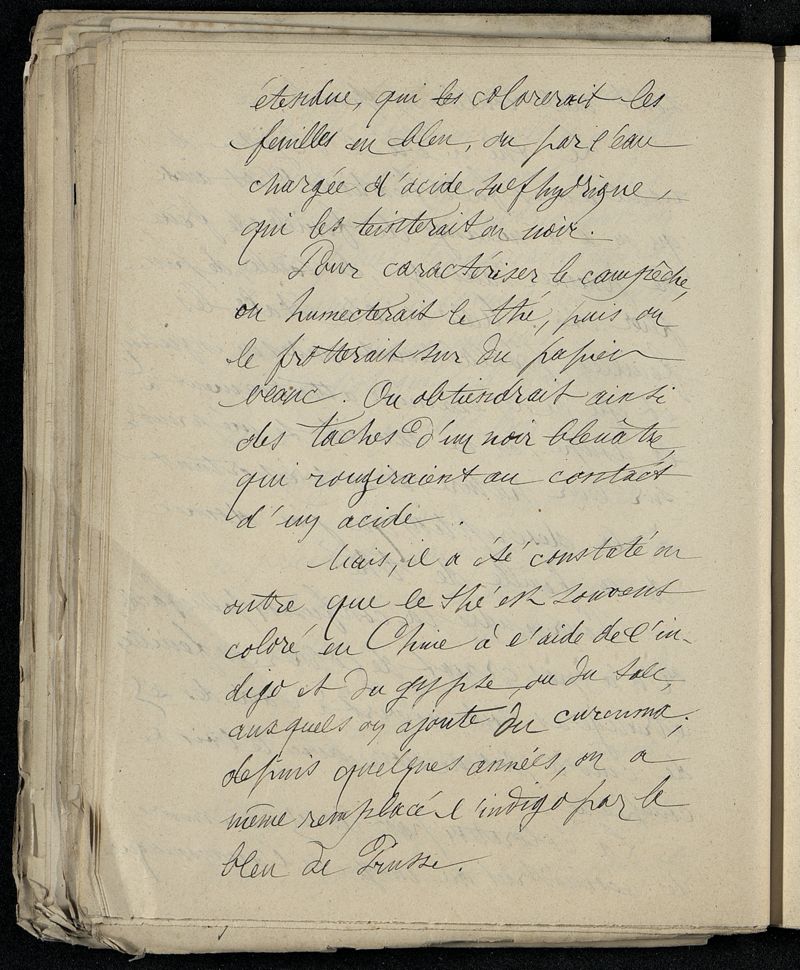 étendue, qui les colorerait les
feuilles en bleu, ou par l'eau
chargée d'acide sulfhydrique,
qui les teinterait en noir.
Pour caractériser le campêche,
on humecterait le thé, puis on
le frotterait sur du papier
blanc. On obtiendrait ainsi
des taches d'un noir bleuâtre
qui rougiraient au contact
d'un acide.
Mais, il a été constaté en
outre que le thé est souvent
coloré en Chine à l'aide de l'in-
digo et du gypse, ou du talc,
auxquels on ajoute du curcuma;
depuis quelques années, on a
même remplacé l'indigo par le
bleu de Prusse.